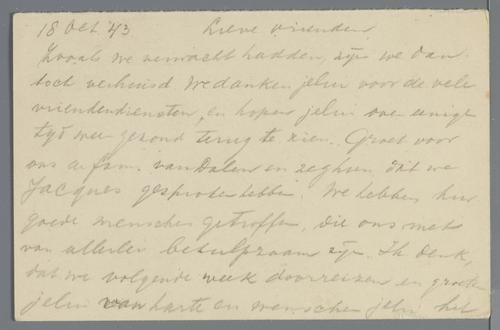 18 Oct '43 Lieve vrienden,
Zooals we verwacht hadden, zijn we dan
toch verhuisd. We danken jelui voor de vele
vriendendiensten, en hopen jelui over eenige
tijd weer gezond terug te zien. Groet voor
ons de fam. van Dalen en zeg hun dat we
Jacques gesproken hebben. We hebben hier
goede menschen getroffen, die ons met
van allerlei behulpzaam zijn. Ik denk,
dat we volgende week doorreizen en groeten
jelui van harte en wenschen jelui het